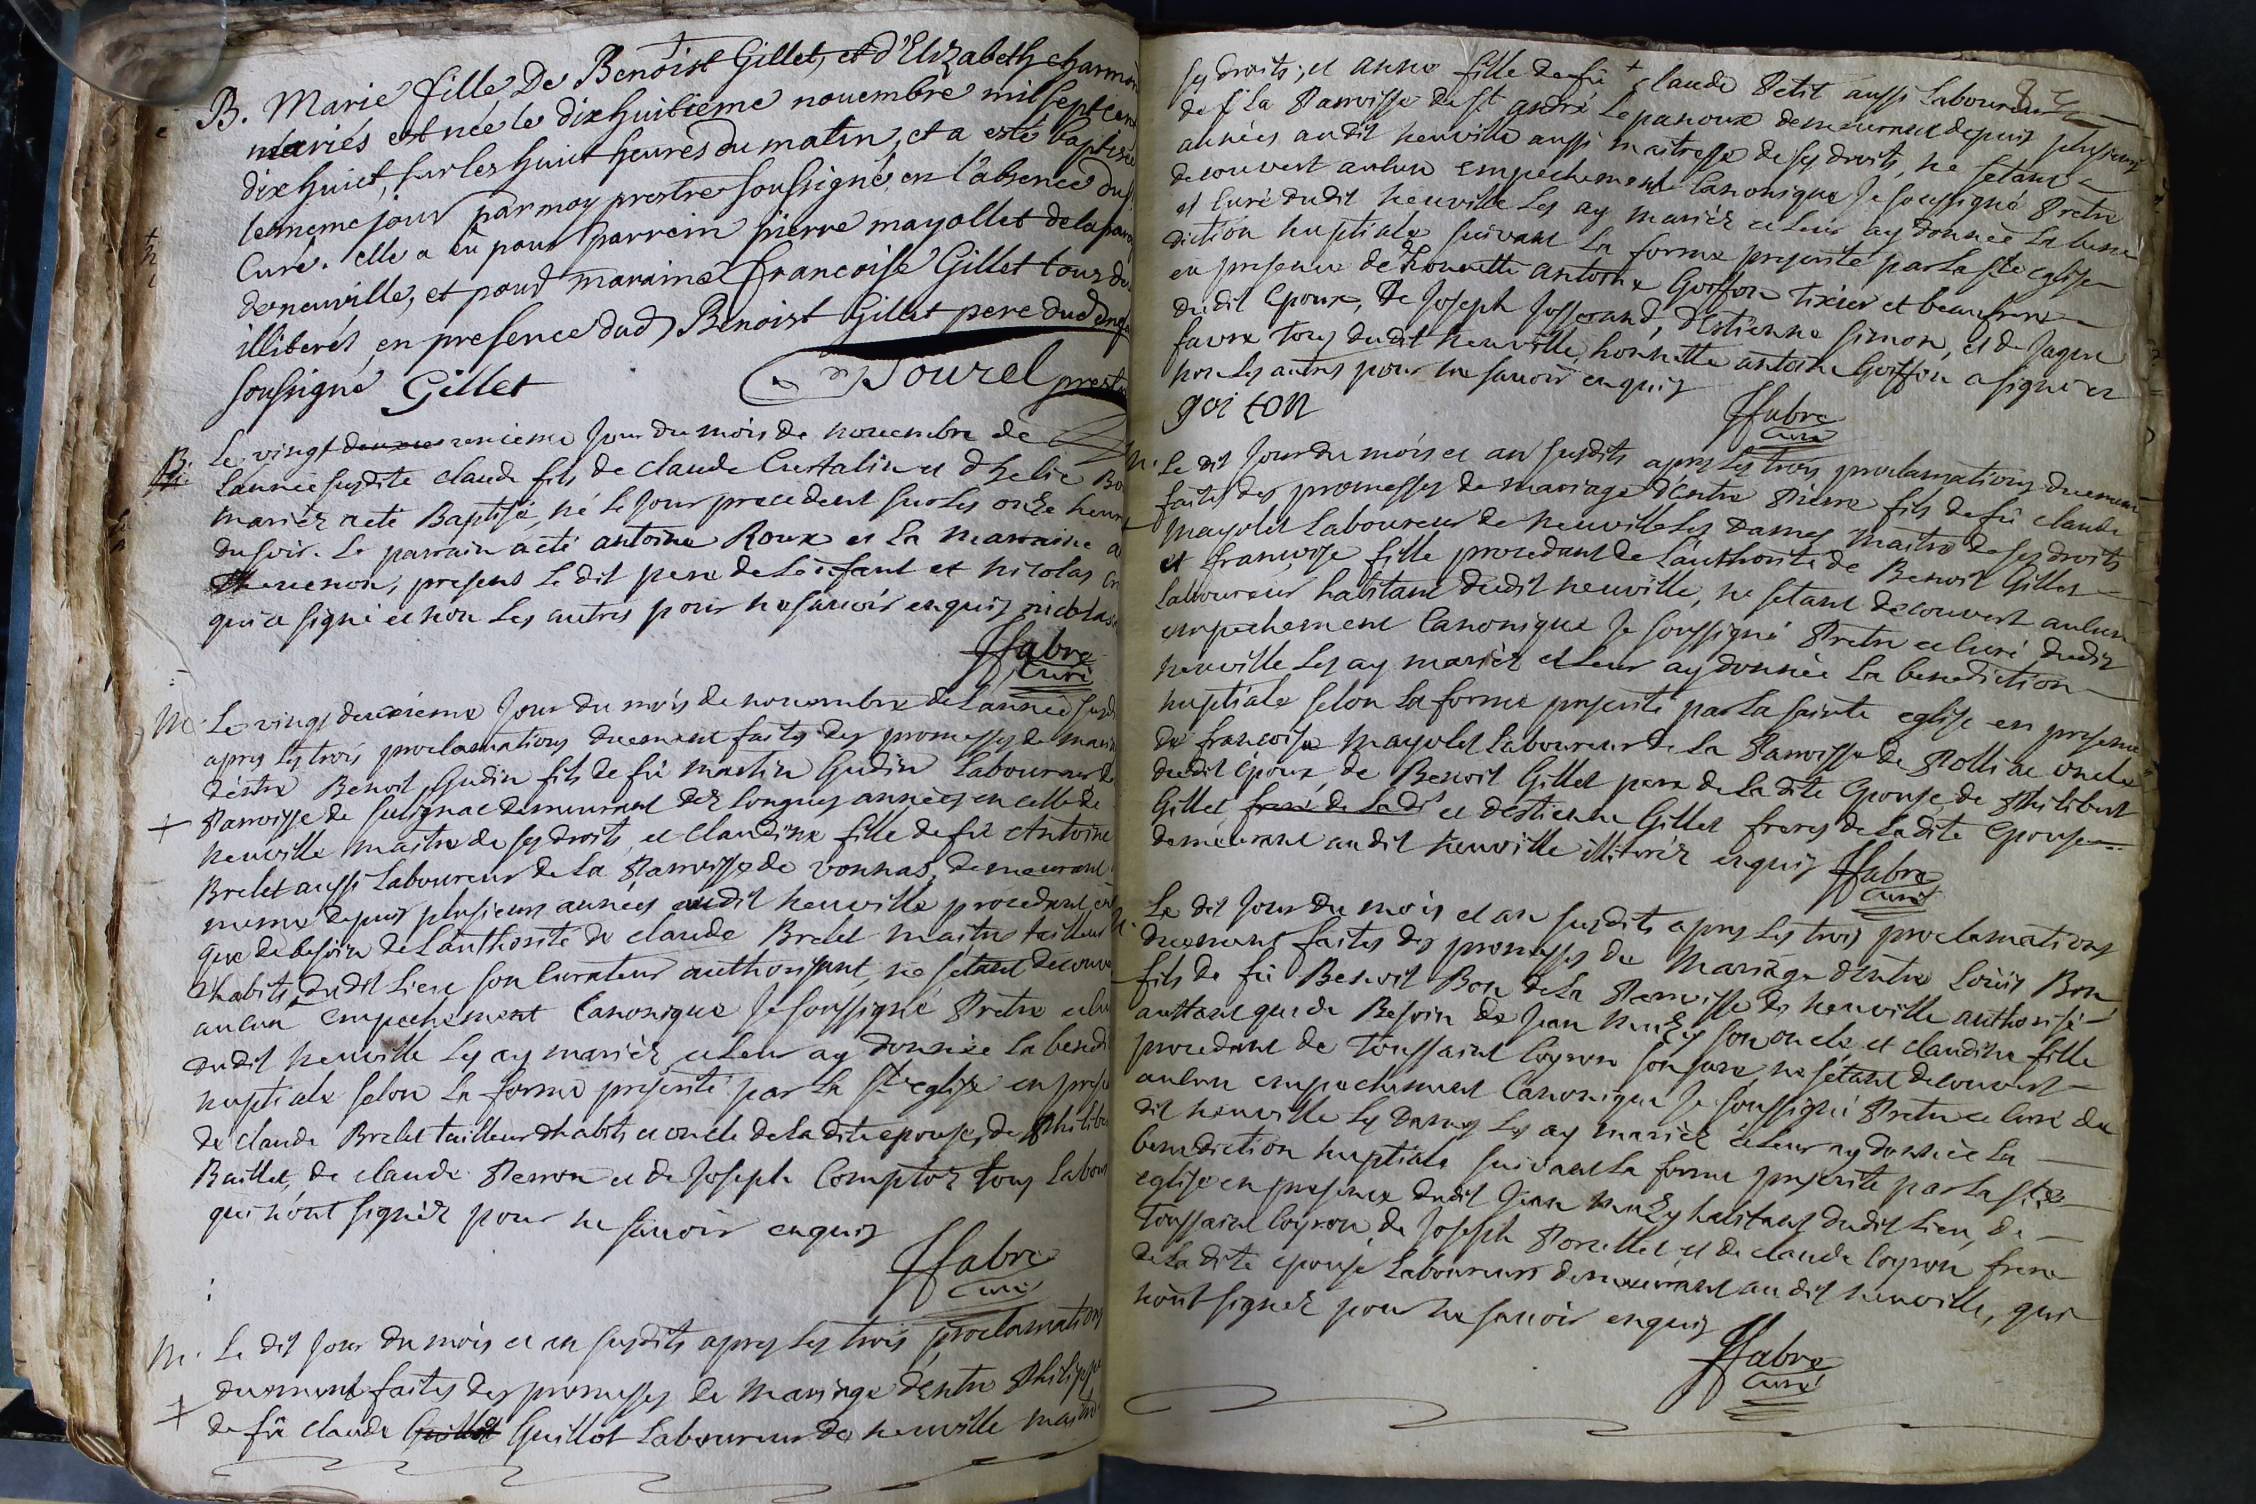 B. Marie fille De Benoist Gillet, et d'Elizabeth charmo
mariés est née le dixhuitieme novembre mil sept cent
dix huict, sur les huict heures du matin, et a esté baptisée
le meme jour par moy prestre soussigné en l'absence du s
Curé. elle a eu pour parrein pierre mayollet de la paro
de neuville, et pour maraine francoise Gillet tous de
illiterés en presence dud Benoist Gillet pere dud enfa
soussigné Gillet Tourel prest
B. Le vingt deuxieme jour du mois de novembre de
L'année susdite claude fils de claude Curtalin et d'helie Bo
mariéz a eté Baptisé, né le jour precedent sur les onze heur
du soir. Le parrain a eté antoine Roux et La marraine
Thevenon, presens Le dit pere de L'enfant et nicolas
qui a signé et non Les autres pour ne sauoir enquis nicolas
ffabre
Curé
M. Le vingt deuxieme Jour du mois de novembre de L'année susd
apres Les trois proclamations duement faites des promesses de maria
d'entre Benoit Gudin fils de fû martin Gudin Laboureur de
Parroisse de sulignac demeurant dez Longues années en celle de
neuville maitre de ses droits, et claudine fille de fû Antoine
Brelet aussi Laboureur de La Parroisse de vonnas, demeurant
meme depuis plusieurs années audit neuville procedant en
que de besoin de L'authorité de claude Brelet maitre tailleur
d'habits dudit Lieu son Curateur authorisant, ne s'etant decouve
aucun empechement Canonique Je soussigné Pretre et cu
dudit neuville Les ay mariéz et Leur ay donnée La bened
nuptiale selon La forme prescrite par La Ste eglise en prese
de claude Brelet tailleur d'habits et oncle de La dite epouse, de Philiber
Baillet, de claude Perron et de Joseph Comptoz tous Labour
qui n'ont signéz pour ne sauoir enquis
ffabre
Curé
M. Le dit Jour du mois et an susdits apres Les trois proclamations
duement faites des promesses de mariage d'entre Philippe
de fû claude Guillot Guillot Laboureur de neuville maitre
ses droits, et anne fille de fû claude Petit aussi Laboureur
de La Parroisse de St andré Le panoux demeurant depuis plusieurs
années audit neuville aussi maitresse de ses droits, ne s'etant
decouvert aucun empechement Canonique Je soussigné Pretre
et Curé dudit neuville Les ay mariéz et Leur ay donnée La bene
diction nuptiale suivant La forme prescrite par La Ste eglise
en presence de honnette antoine Goiffon tixier et beaufrere
dudit epoux, de Joseph Josserand, d'estienne simon, et de Jaque
favre tous dudit neuville, honnette antoine Goiffon a signé et
non Les autres pour ne sauoir enquis
goifon ffabre
Curé
M. Le dit Jour du mois et an susdits apres Les trois proclamations duement
faites des promesses de mariage d'entre Pierre fils de fû claude
mayolet Laboureur de neuville Les Dames maitre de ses droits
et françoise fille procedant de L'authorité de Benoit Gillet
Laboureur habitant dudit neuville, ne s'etant decouvert aucun
empechement Canonique Je soussigné Pretre et curé dudit
neuville Les ay mariéz et Leur ay donnée La benediction
nuptiale selon La forme prescrite par La sainte eglise en presence
de françoise mayolet Laboureur de La Parroisse de Polliac oncle
dudit epoux, de Benoit Gillet pere de La dite epouse, de Philibert
Gillet frere de La dt et d'estienne Gillet freres de La dite epouse
demeurant audit neuville illiteréz enquis ffabre
Curé
Le dit Jour du mois et an susdits apres Les trois proclamations
duement faites des promesses de Mariage d'entre Loüis Bon
fils de fû Benoit Bon de La Parroisse de neuville authorisé
auttant que de Besoin de Jean son oncle et claudine fille
procedant de Toussaint Coyron son pere, ne s'etant decouvert
aucun empechement Canonique Je soussigné Pretre et Curé du
dit neuville Les Dames Les ay mariéz et Leur ay donnée La
benediction nuptiale suivant La forme prescrite par La Ste
eglise en presence dudit Jean habitant dudit Lieu, de
Toussaint Coyron, de Joseph Porcellet et de claude Coyron frere
de La dite epouse Laboureurs demeurant audit neuville, qui
n'ont signéz pour ne sauoir enquis
ffabre
Curé